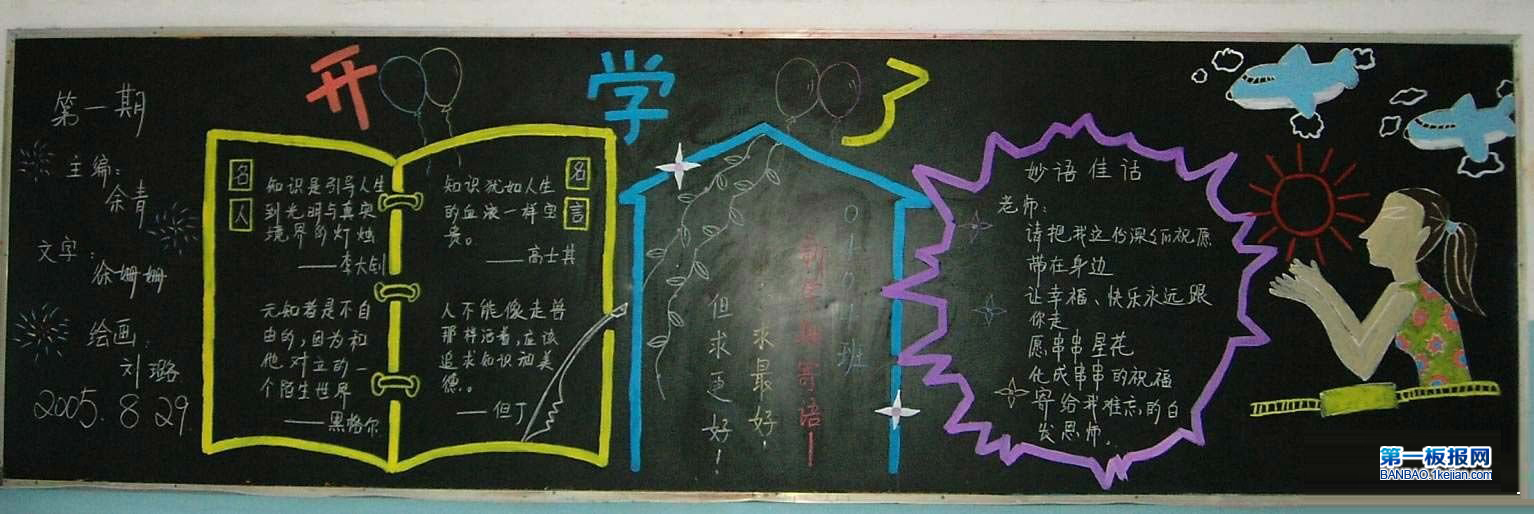 开学了
第一期
主编：
余青
文字：
徐姗姗
绘画：
刘璐
2005.8.29.
名人
知识是引导人生
到光明与真实
境界的灯烛
——李大钊
无知者是不自
由的，因为和
他对立的一
个陌生世界
——黑格尔
名言
知识犹如人生
的血液一样宝
贵。
——高士其
人不能像走兽
那样活着，应该
追求知识和美
德。
——但丁
班
新学期寄语！
求最好！
但求更好！
妙语佳话
老师：
请把我这份深深的祝愿
带在身边
让幸福、快乐永远跟
你走
愿串串星花
化成串串的祝福
寄给我难忘的白
发恩师。
第一板报网
BANBAO.1kejian.com